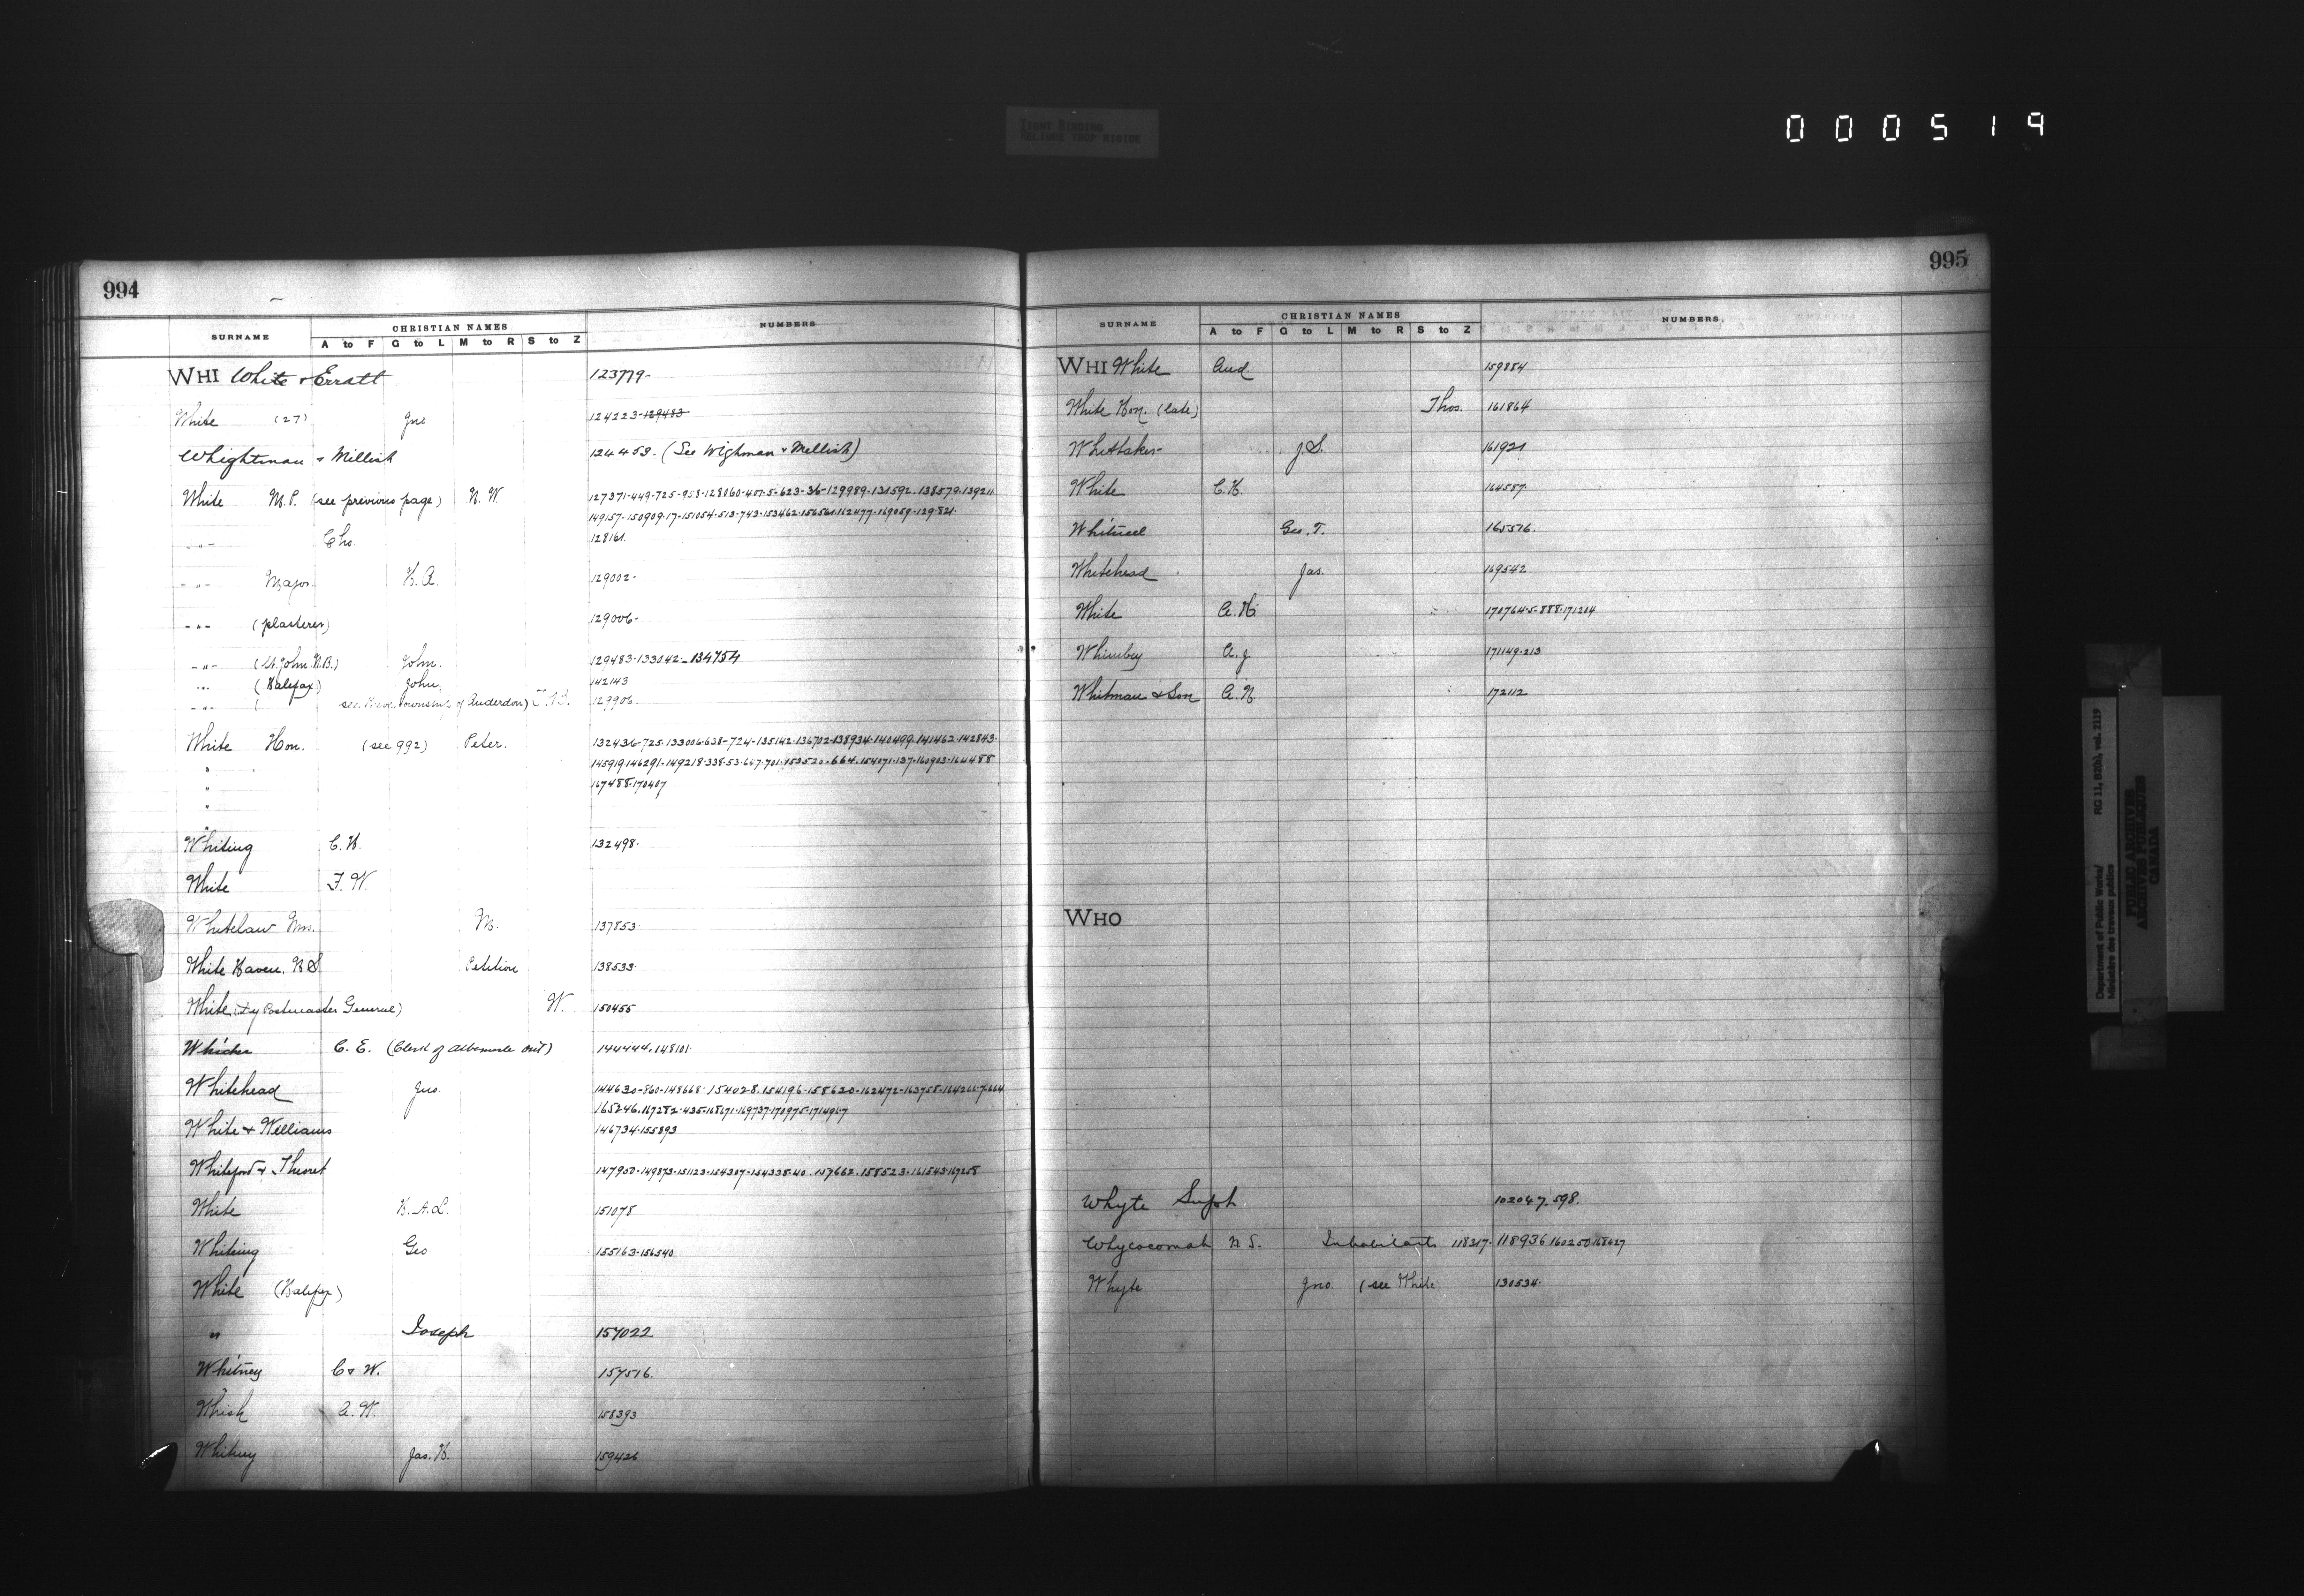 TIGHT BINDING
RELIURE TROP RIGIDE
000519
994
SURNAME CHRISTIAN NAMES NUMBERS
A to F G to L M to R S to Z
WHI White & Erratt 123779-
White (27) Jno 124223-129483
Whightman & Millish 124453. (See Wighman & Mellish)
White M.P. (see previous page) N. W. 127371-449-725-958-128060-407-5-623-36-129989-131592-138579-139211
149157-150909-17-151054-513-743-153462-156561-162477-169059-129-821
-"- Chs. 128161.
-"- Major H. A. 129002-
-"- (plasterer) 129006-
-"- (St. John N.B.) John. 129483-133042-134754
-"- (Halifax) John. 142143
-"- ( see Township of Anderdon) 129906.
White Hon. (see 992) Peter. 132436-725-133006-638-724-135142-136702-138934-140499-141462-142843-
" 145919-146291-149218-338-53-647-701-153520-664-154071-137-160903-164488
" 167488-170407
"
"
Whiting C. H. 132498.
White F. W.
Whitelaw Mrs. M. 137853
White Haven, N.S. Petition 138533.
White (Dy Postmaster General) W. 150455
Whicher C. E. (Clerk of Albemarle Ont) 144444.148101.
Whitehead Jno. 144630-860-148668-154028.154196-158620-162472-163758-164266-7-664
165246.167282-435-168671-169737-170975-171496-7
White & Williams 146734-155893
Whiteford & Theoret 147950-149873-151123-154307-154338-40.157662.158523-161543-167258
White H.A.L. 151078
Whiting Geo 155163-156540
White (Halifax)
" Joseph 157022
Whitney C & W. 157516.
Whish A. W. 158393
Whitney Jas. H. 159426
995
SURNAME CHRISTIAN NAMES NUMBERS.
A to F G to L M to R S to Z
WHI White And. 159884
White Hon. (late) Thos. 161864
Whittaker J. S. 161921
White C. H. 164587.
Geo. T. 165576.
Whitehead Jas. 169542
White A. H. 170764-5-888-171204
Whimbey A. J. 171149-213
Whitman & Son A. N 172112
WHO
Whyte Supt. 102047.598.
Whycocomah N S. Inhabitants 118317-118936 160250-168427
Whyte Jno. (see White 130534.
Department of Public Works/ RG 11, B2(b), vol. 2119
Ministère des travaux publics
PUBLIC ARCHIVES
ARCHIVES PUBLIQUES
CANADA